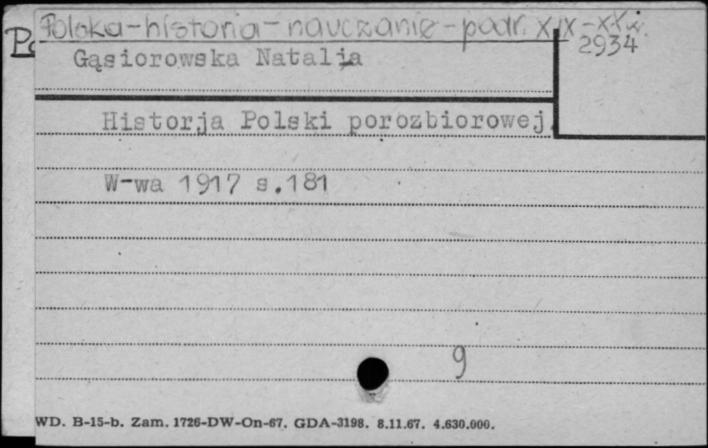 Polska-historia-nauczanie-podr. XIX-XXw.
2934
Gąsiorowska Natalia
Historja Polski porozbiorowej.
W-wa 1917 s.181
9
WD. B-15-b. Zam. 1726-DW-On-67. GDA-3198. 8.11.67. 4.630.000.